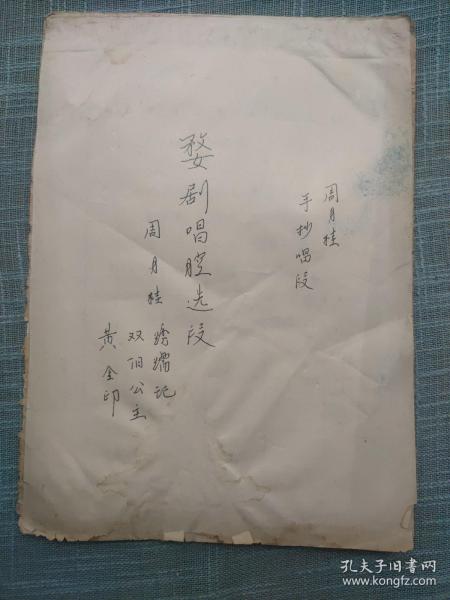 周月桂
手抄唱段
婺剧唱腔选段
周月桂
绣襦记
双阳公主
黄金印
孔夫子旧书网
www.kongfz.com